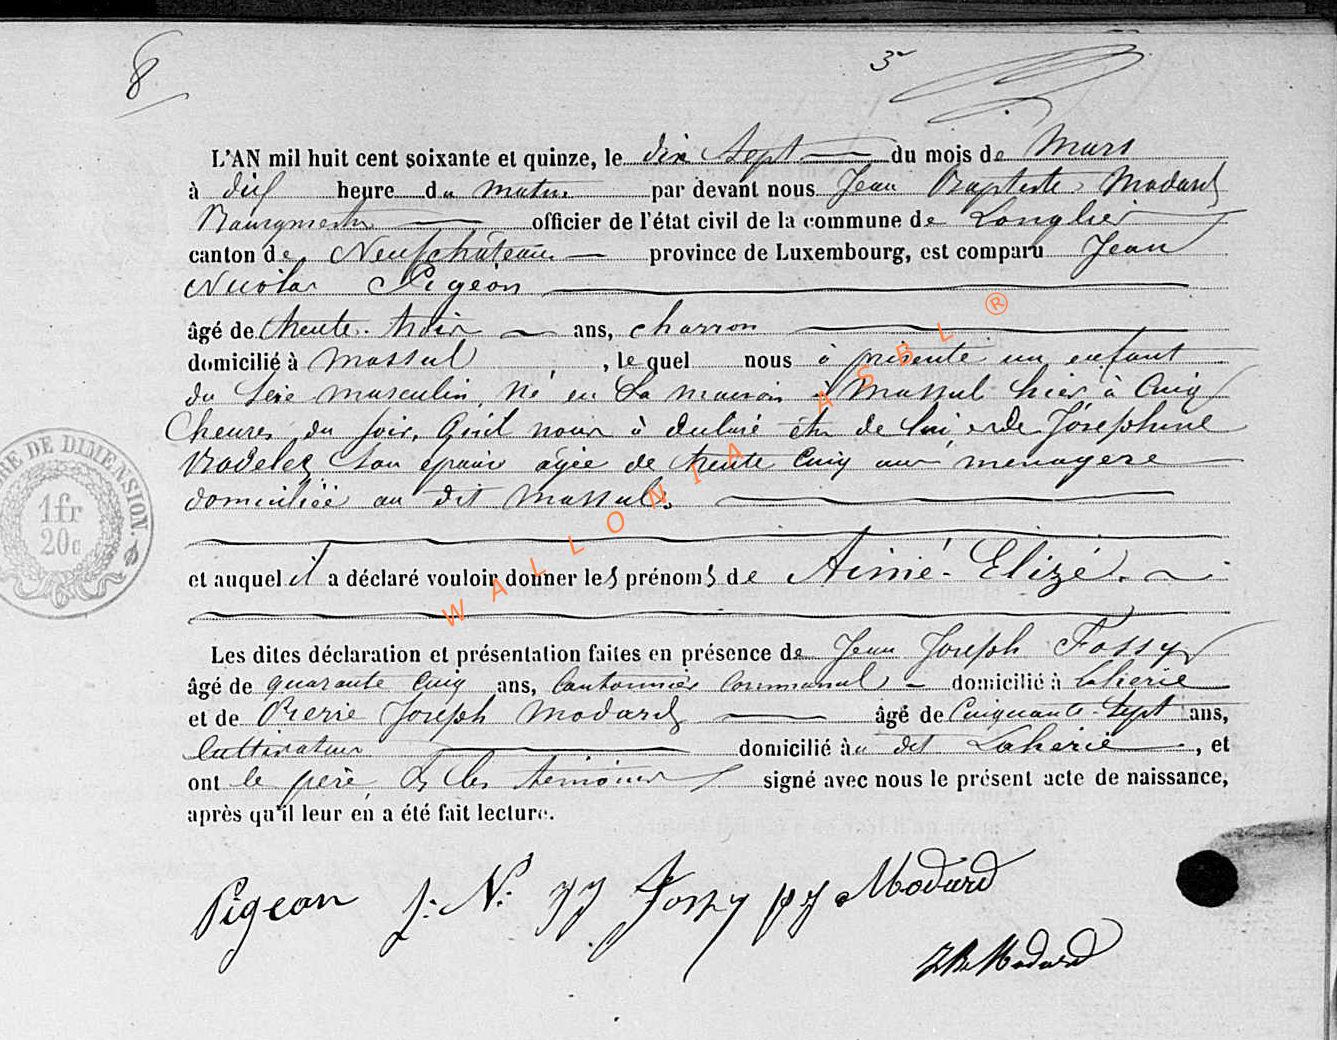 8
3
L'AN mil huit cent soixante et quinze, le dix Sept du mois de Mars
à dix heure du matin par devant nous Jean Baptiste Modard
Bourgmestre officier de l'état civil de la commune de Longlier
canton de Neufchâteau province de Luxembourg, est comparu Jean
Nicolas Pigeon
âgé de trente-trois ans, charron
domicilié à Massul, le quel nous à présenté un enfant
du sexe masculin, Né en sa maison à Massul hier à Cinq
heures du soir, qu'il nous à déclaré être de lui et de Joséphine
son épouse âgée de trente cinq ans ménagère
domiciliée au dit Massul.
et auquel il a déclaré vouloir donner les prénoms de Aimé-Elizé.
Les dites déclaration et présentation faites en présence de Jean Joseph Fossy
âgé de quarante cinq ans, Cantonnier Communal domicilié à Laherie
et de Pierre Joseph Modard âgé de Cinquante-Sept ans,
Cultivateur domicilié au dit Laherie, et
ont le père, & les témoins signé avec nous le présent acte de naissance,
après qu'il leur en a été fait lecture.
Pigeon J. N. JJ Fossy PJ Modard
JB Modard
RE DE DIMENSION.
1fr
20c
WALLONIA ASBL ®